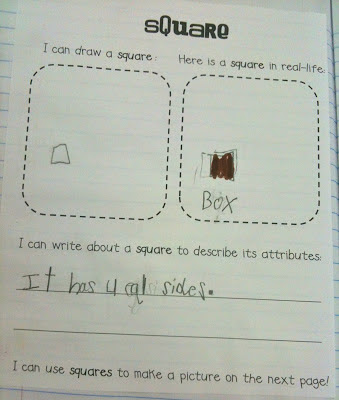 SQUARE
I can draw a square:
Here is a square in real-life:
BOX
I can write about a square to describe its attributes:
It has 4 eql sides.
I can use squares to make a picture on the next page!